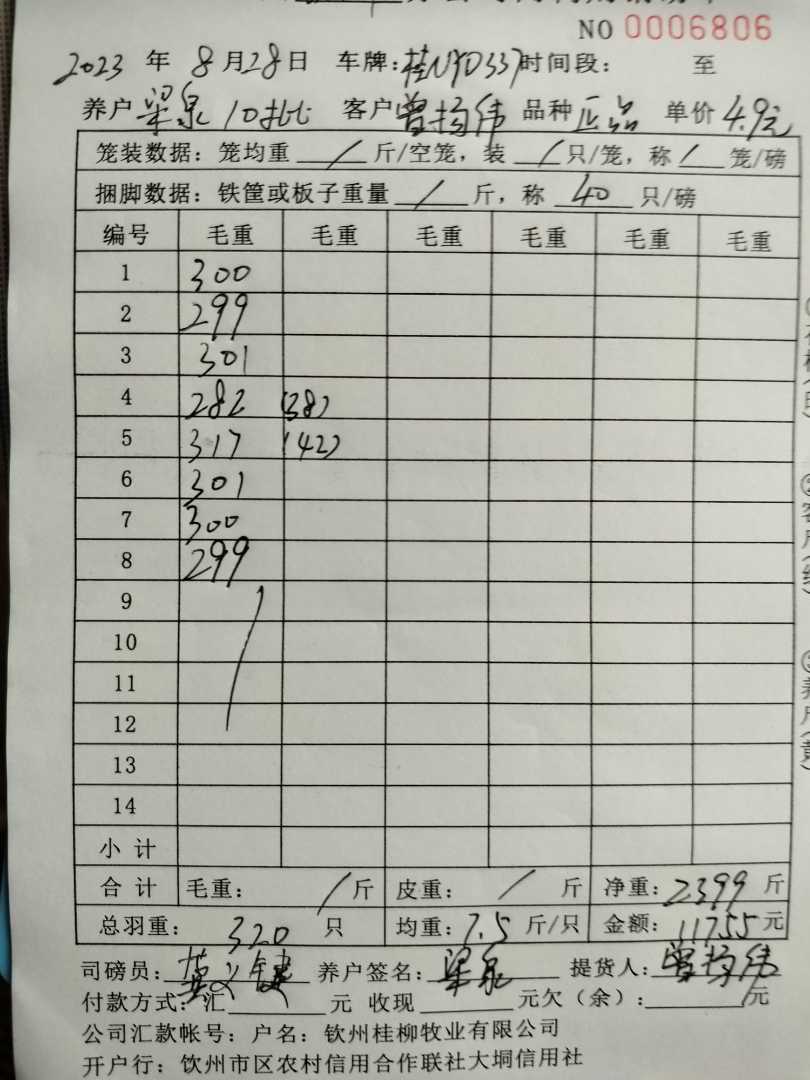 NO 0006806
2023 年 8 月 28 日 车牌: 桂NYD337 时间段: 至
养户 梁泉 10批 客户 曾扬伟 品种 正品 单价 4.9元
笼装数据: 笼均重 / 斤/空笼, 装 / 只/笼, 称 / 笼/磅
捆脚数据: 铁筐或板子重量 / 斤, 称 40 只/磅
编号 毛重 毛重 毛重 毛重 毛重 毛重
1 300
2 299
3 301
4 282 (38)
5 317 (42)
6 301
7 300
8 299
9
10
11
12
13
14
小 计
合 计 毛重: / 斤 皮重: / 斤 净重: 2399 斤
总羽重: 320 只 均重: 7.5 斤/只 金额: 11755 元
司磅员: 养户签名: 梁泉 提货人: 曾扬伟
付款方式: 汇 元 收现 元欠(余): 元
公司汇款帐号: 户名: 钦州桂柳牧业有限公司
开户行: 钦州市区农村信用合作联社大垌信用社